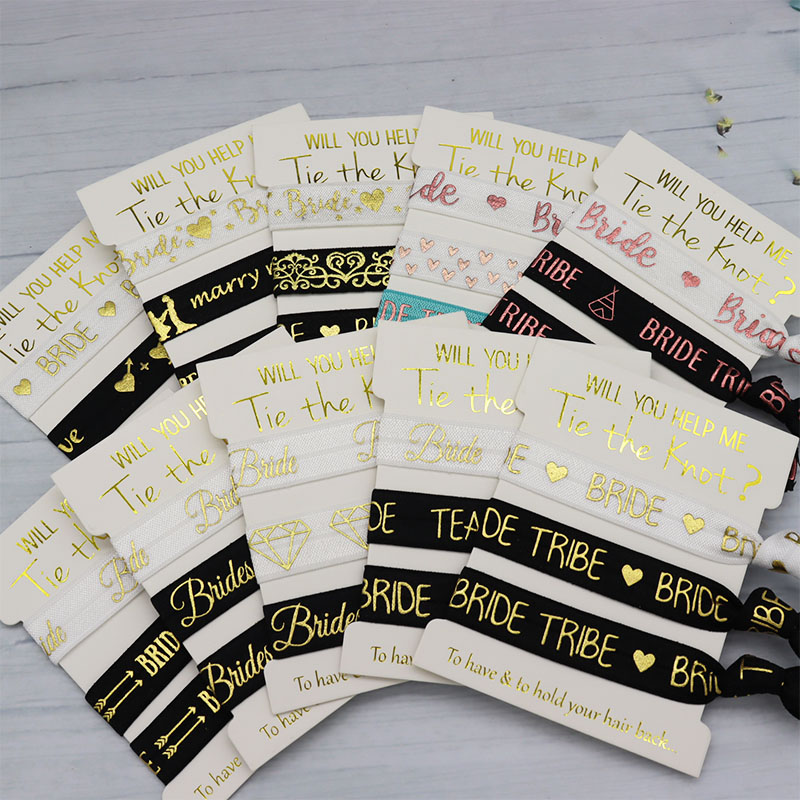 WILL YOU HELP ME
Tie the Knot
BRIDE
WILL YOU HELP
Tie the Kno
Bride Bride
marry
WILL YOU HELP
Tie the Knot
Bride
WILL YOU HELP ME
Tie the Knot
Bride
BRIDE
WILL YOU HELP ME
Tie the Knot?
Bride Bride
TRIBE BRIDE TRIBE
TRIBE BRIDE TRIB
WILL YOU HELP
Tie the Kno
Bride
BRID
To have
WILL YOU HELP
Tie the Knot
Bride
Brides
Brides
To have
WILL YOU HELP
Tie the Knot
Bride
Brides
To have &
WILL YOU HELP ME
Tie the Kno
Bride
DE TEA
BRIDE
To have
WILL YOU HELP ME
Tie the Knot?
DE BRIDE BRI
DE TRIBE BRIDE TRIBE
BRIDE TRIBE BRID T
To have & to hold your hair back..